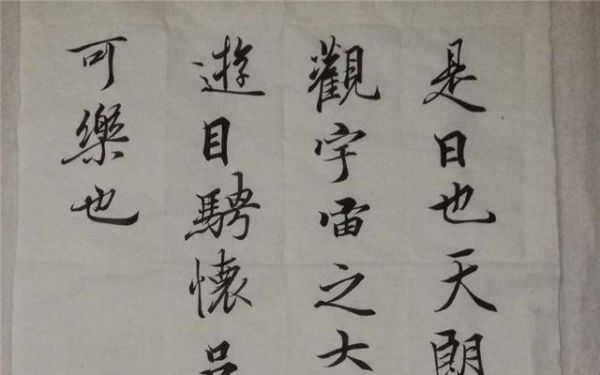 是日也天朗
觀宇宙之大
遊目騁懷
可樂也